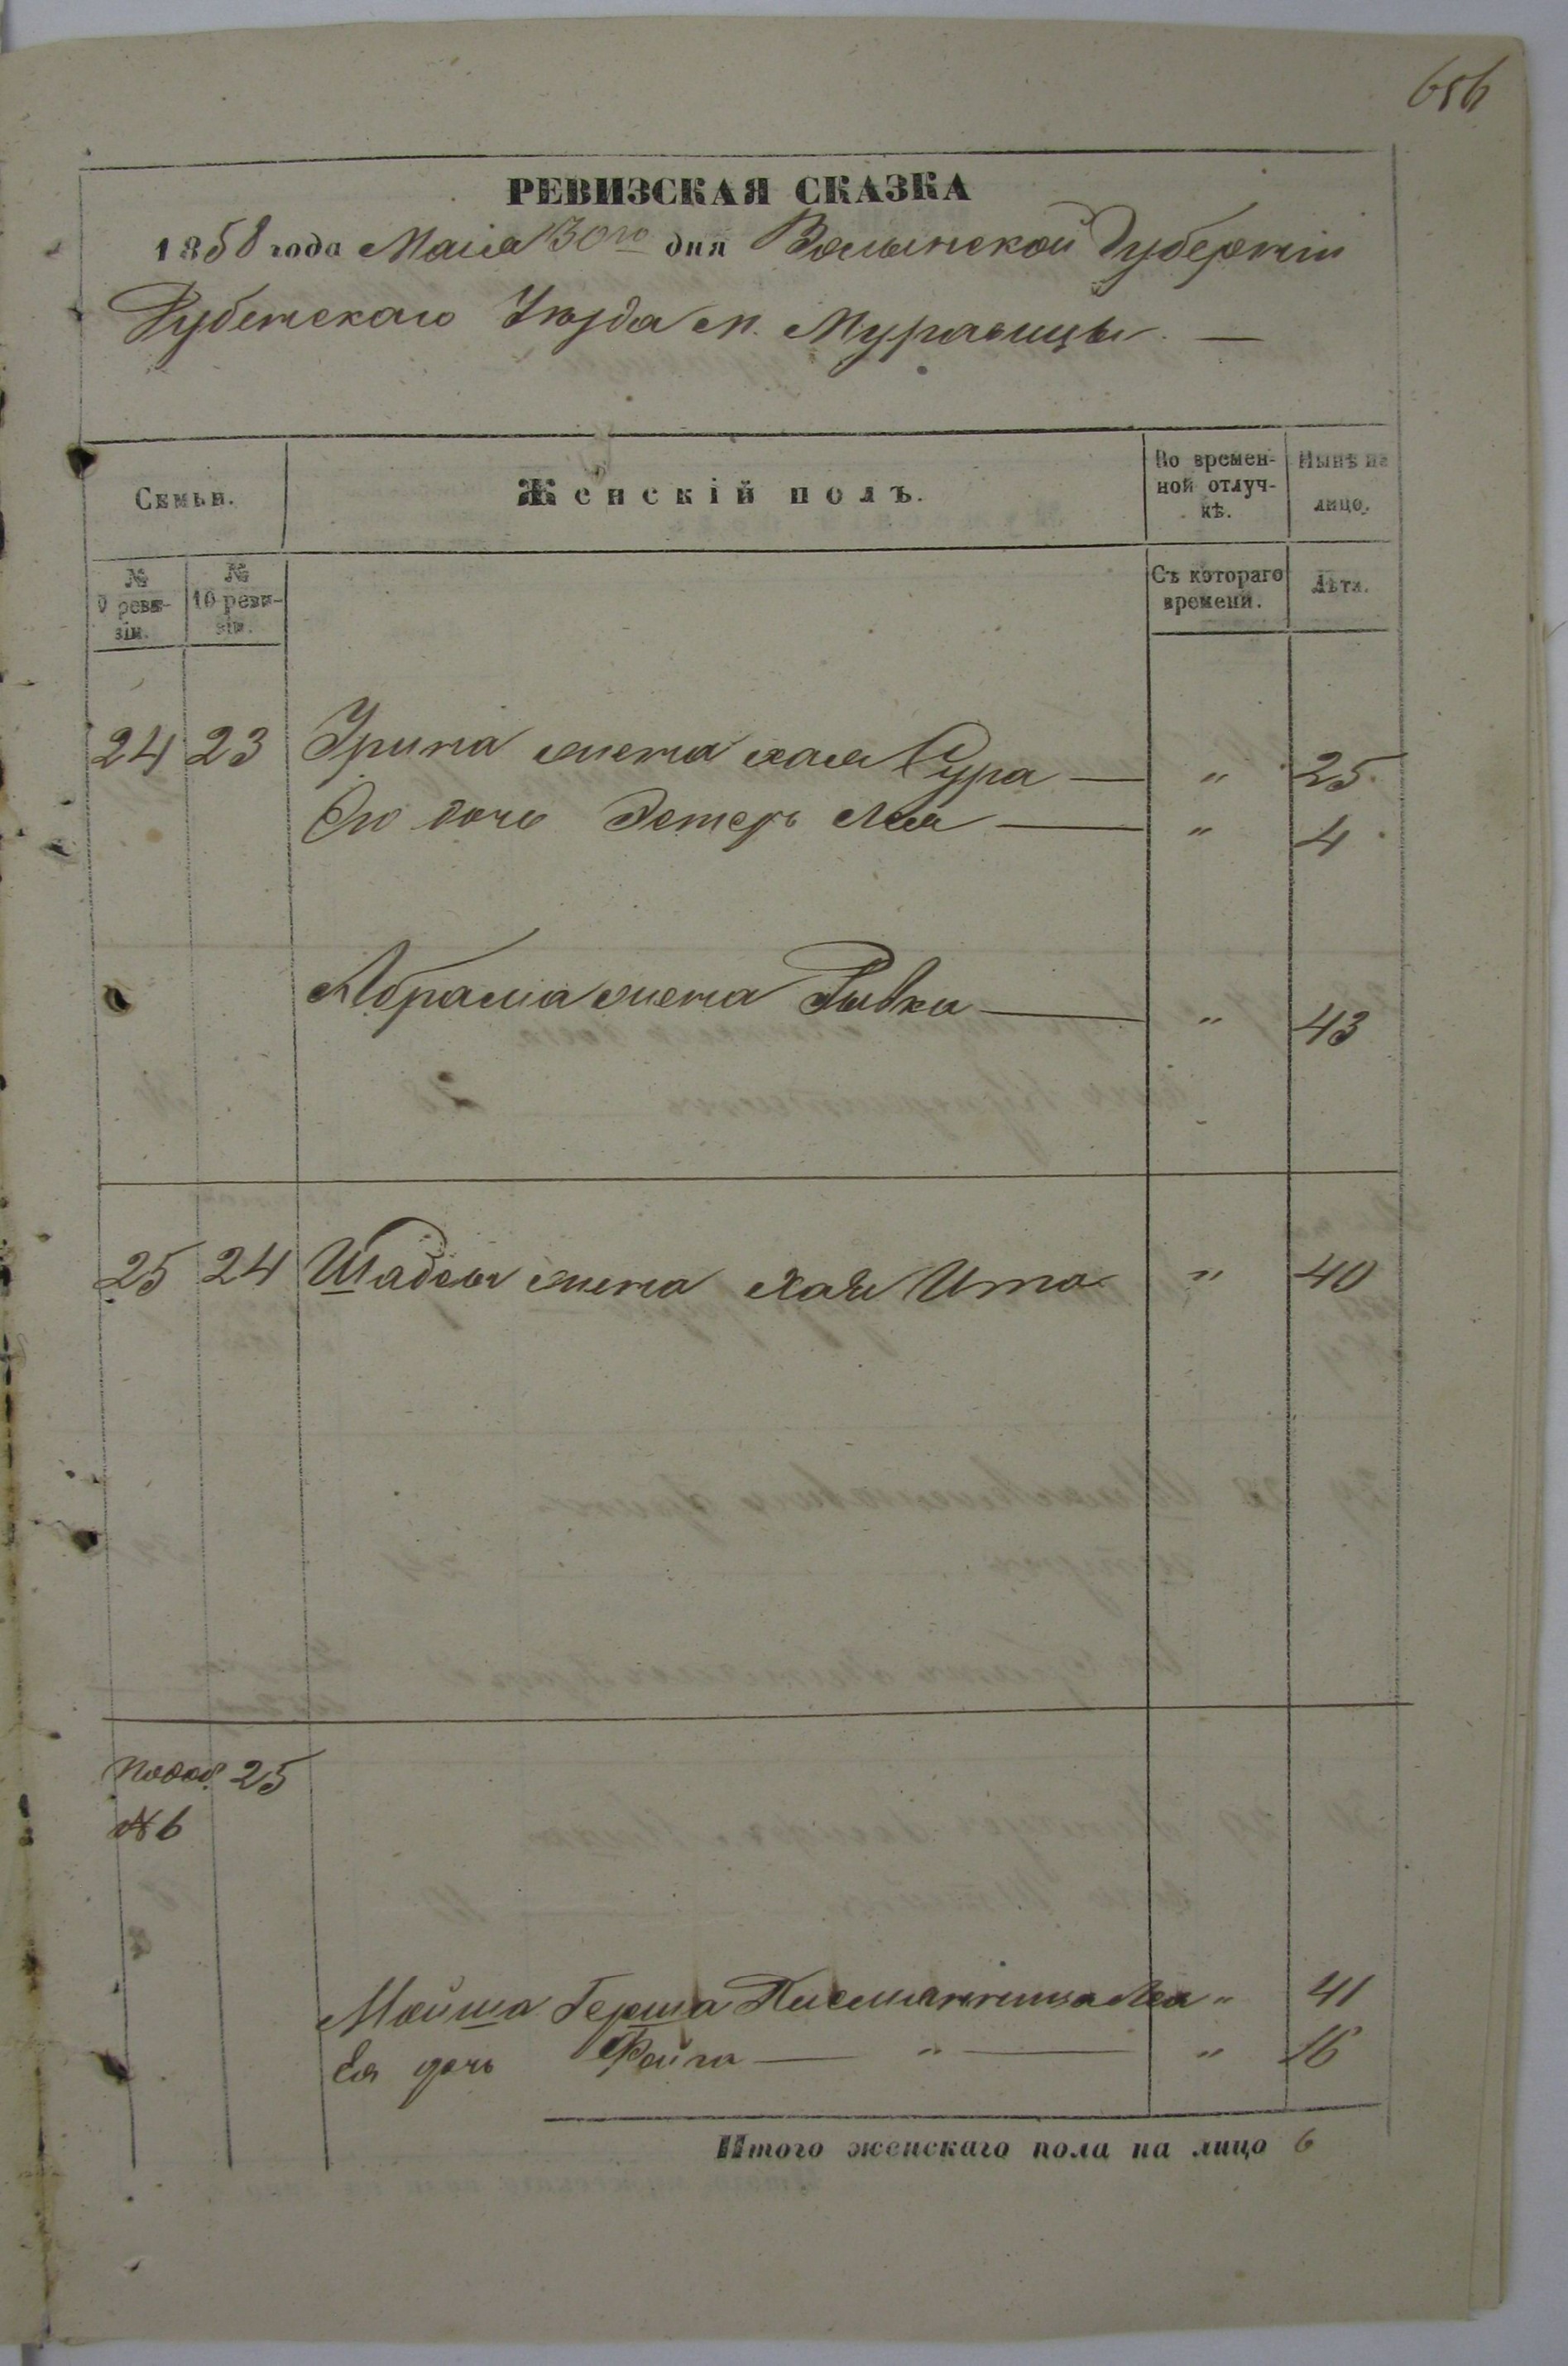 656
РЕВИЗСКАЯ СКАЗКА
1858 года Маія 30го дня Волынской Губерніи
Дубенскаго Уѣзда м. Муравицы. —
Семьи.
Женскій полъ.
Во времен-
ной отлуч-
кѣ.
Нынѣ на
лицо.
№
9 реви-
зіи.
№
10 реви-
зіи.
Съ котораго
времени.
Лѣта.
24 23 жена хая Сура — " 25
Его дочь Эстеръ Лея — " 4
Абрама жена Рывка — " 43
25 24 жена Хая Ита " 40
25
№ 6
Мойша Герша Леа " 41
Ея дочь Файга — " — " 16
Итого женскаго пола на лицо 6